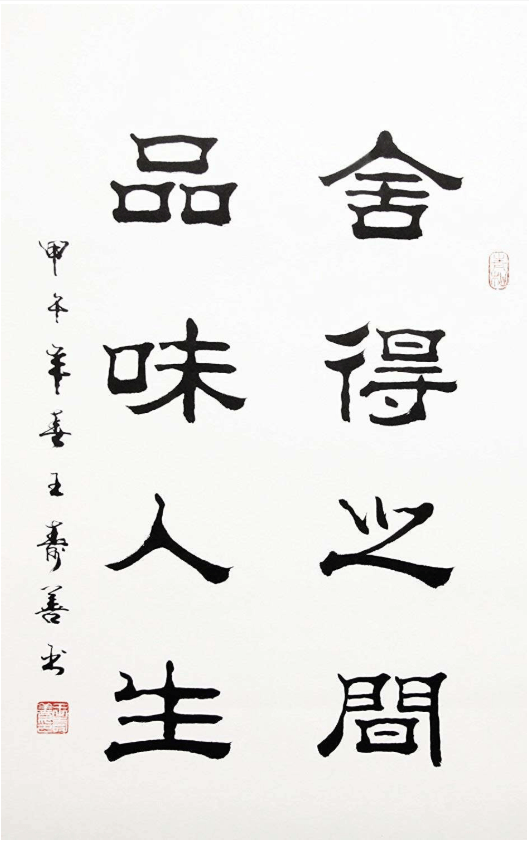 舍得之間
品味人生
甲午年春王壽善书